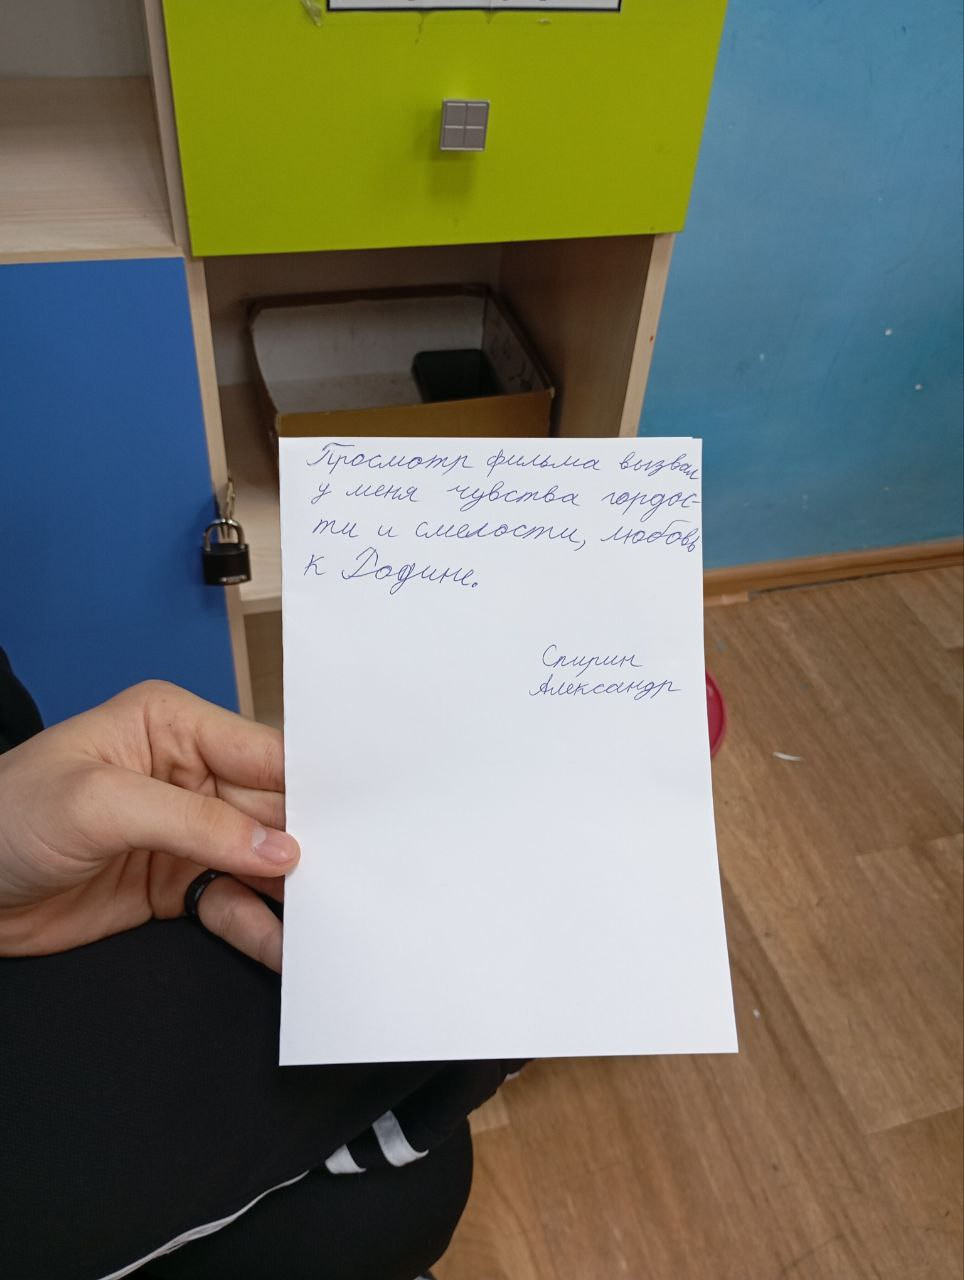 Просмотр фильма вызвал
у меня чувства гордос-
ти и смелости, любовь
к Родине.
Спирин
Александр